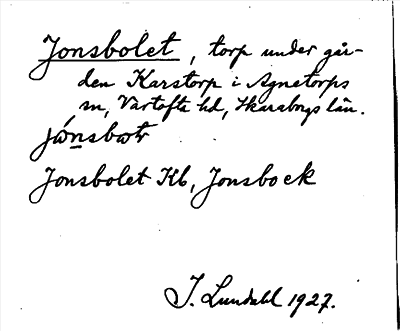 Jonsbolet, torp under går-
den Karstorp i Agnetorps
sn, Vartofta hd, Skaraborgs län.
Jonsbolet Kb, Jonsbo ek
I. Lundahl 1927.